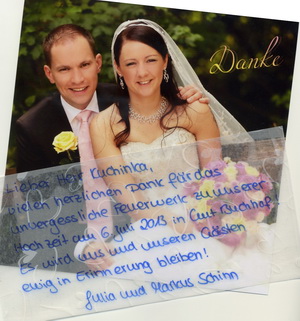 Danke
Lieber Herr Kuchinka,
vielen herzlichen Dank für das
unvergessliche Feuerwerk zu unserer
Hochzeit am 6. Juli 2013 in Gut Buchhof.
Es wird uns und unseren Gästen
ewig in Erinnerung bleiben!
Julia und Markus Schinn